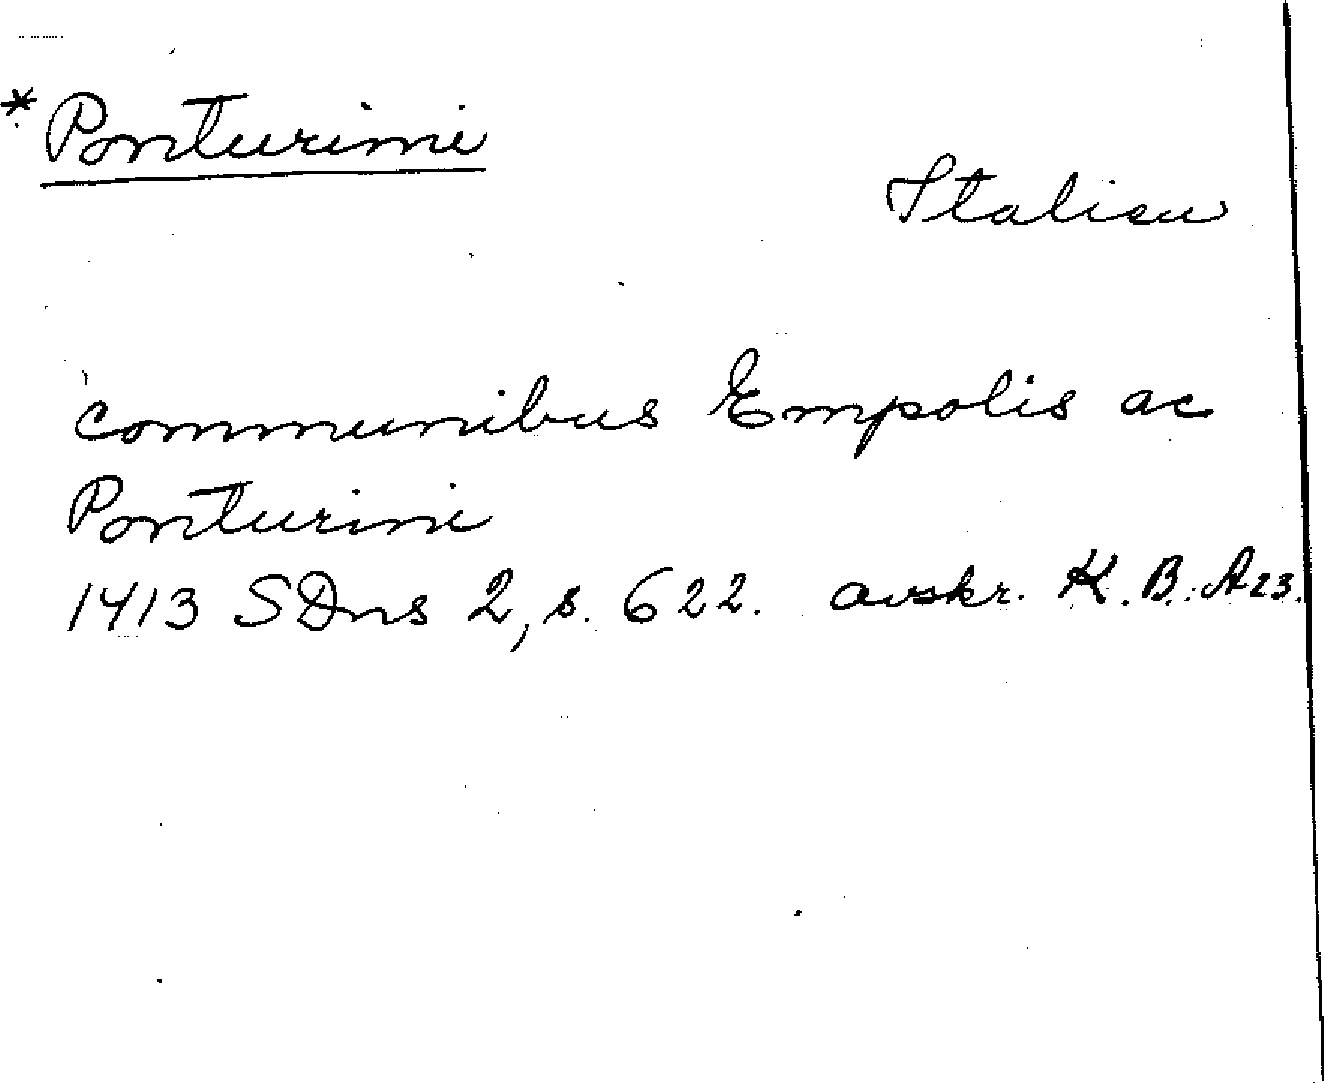 * Ponturimi
Italien
communibus Empolis ac
Ponturini
1413 SDns 2, s. 622. avskr. K.B. A 23.